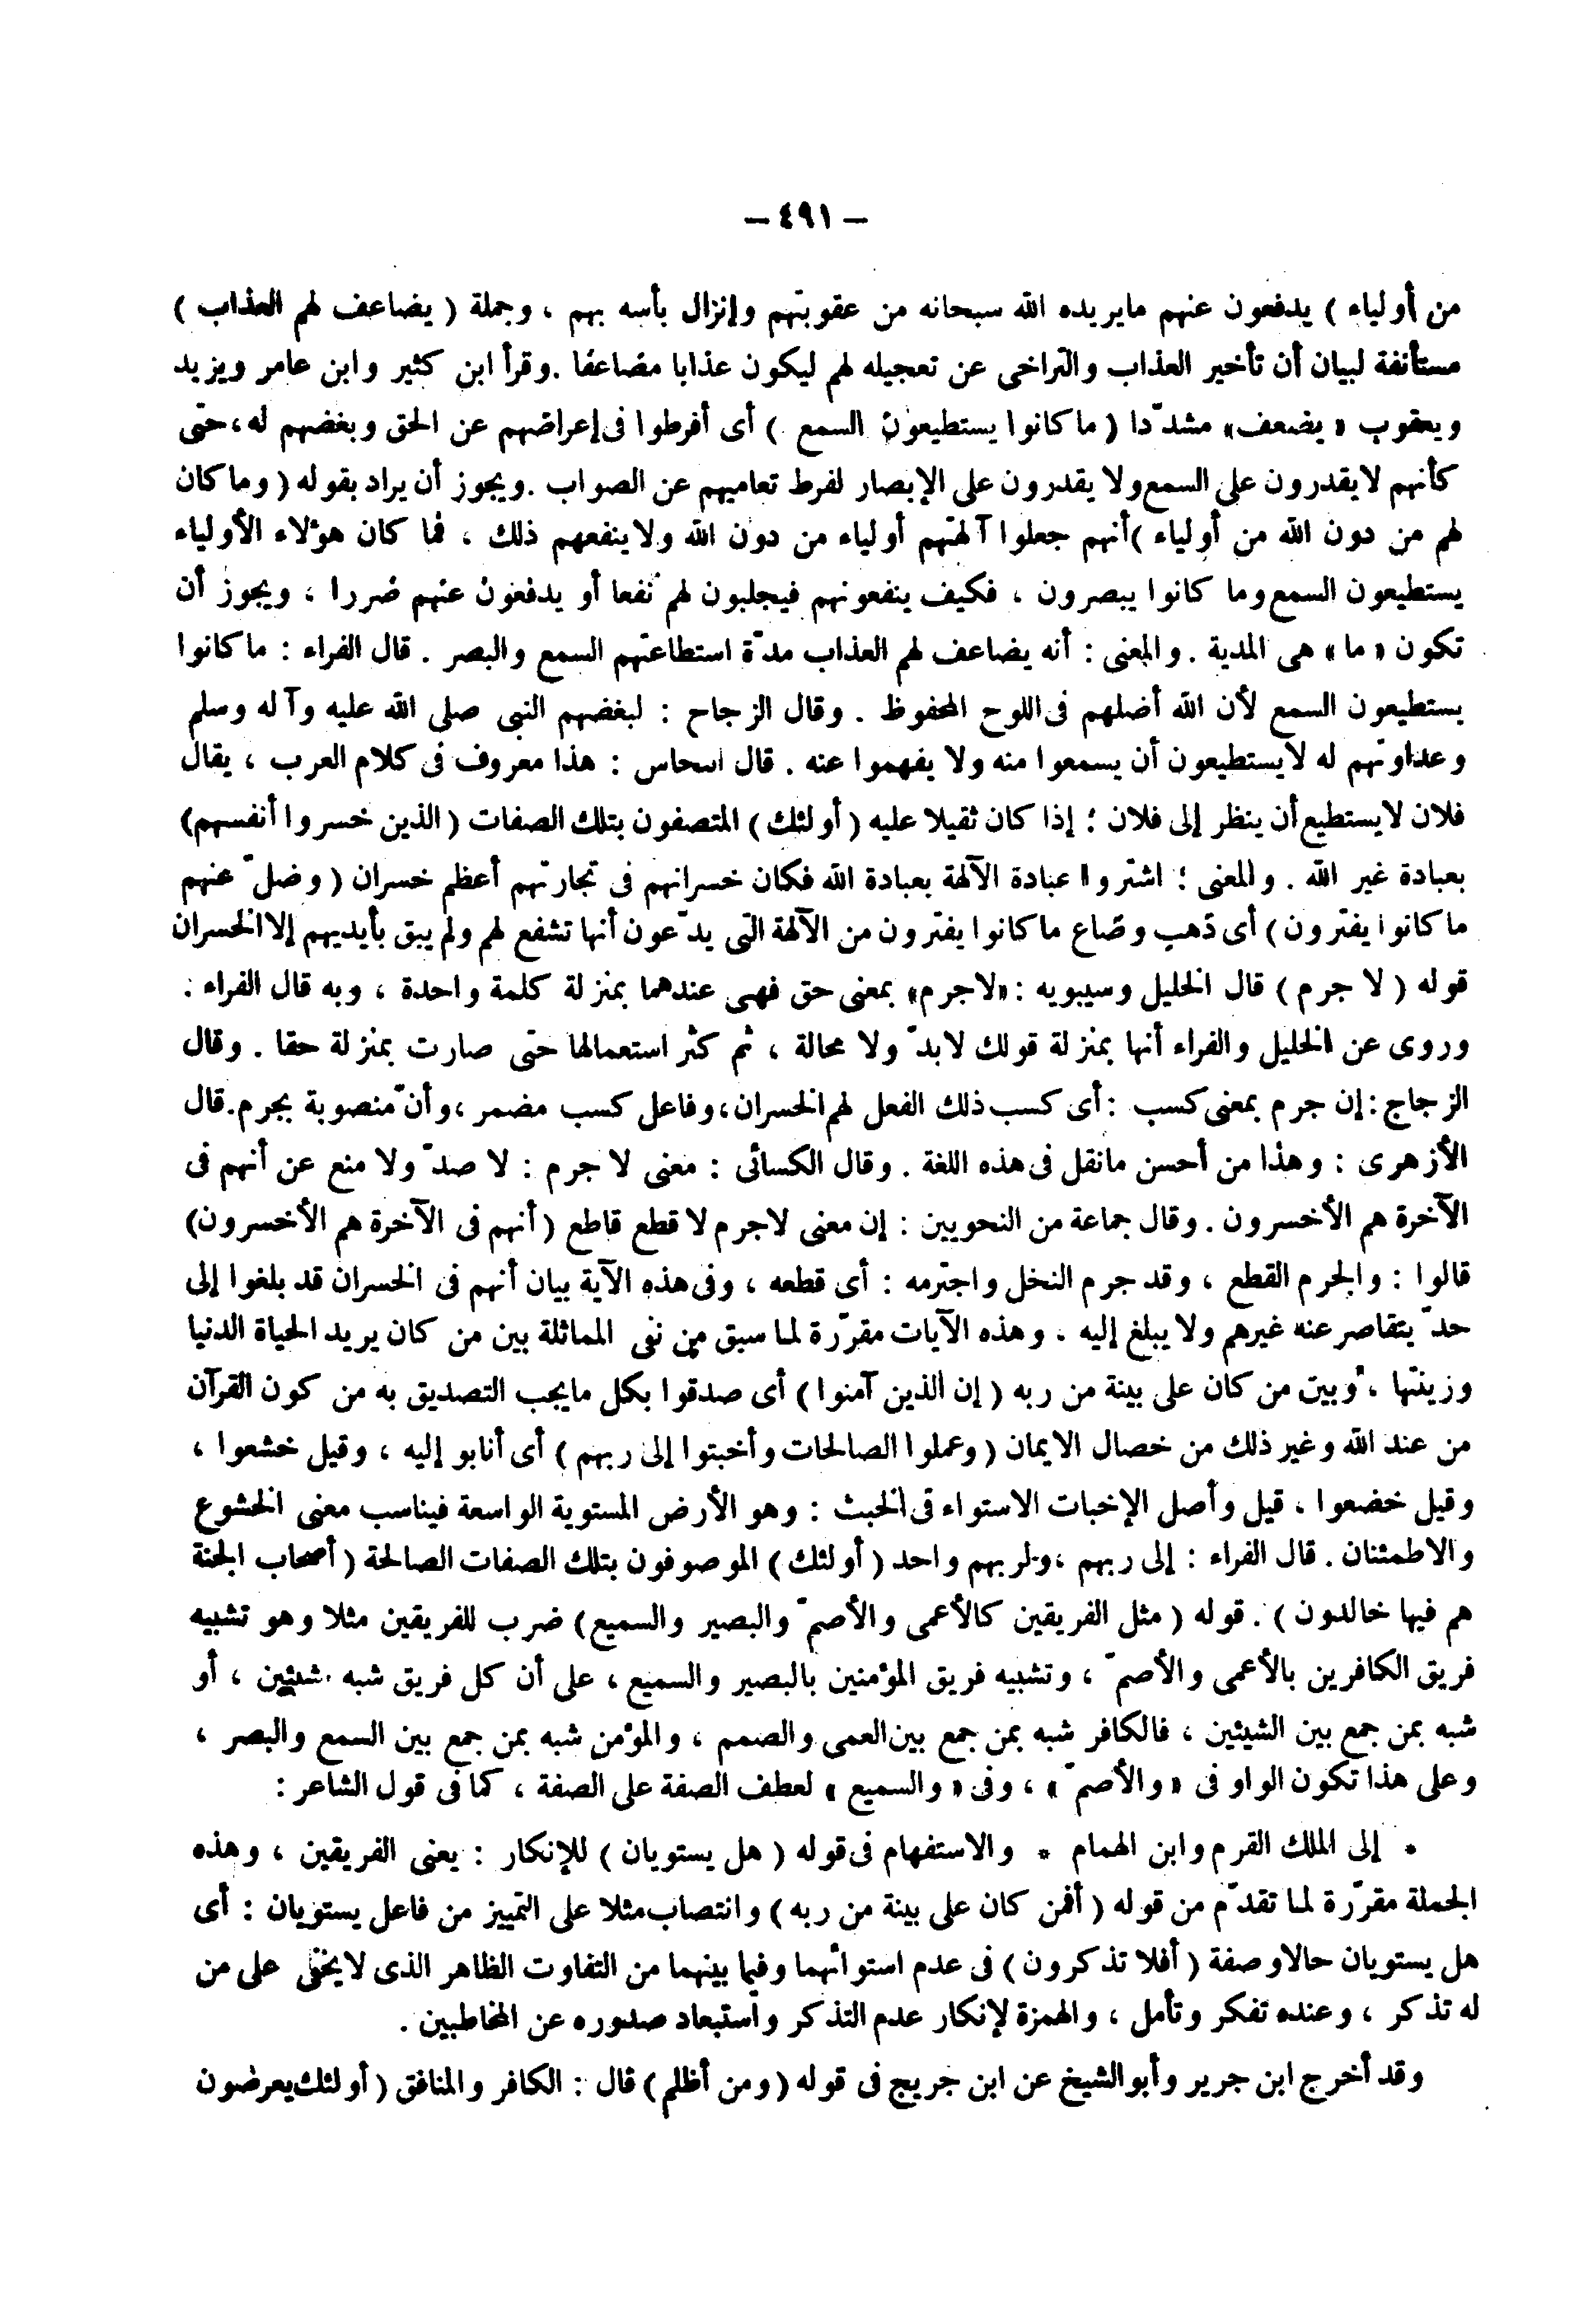 — ٤٩١ —
من أولياء ) يدفعون عنهم مايريده الله سبحانه من عقوبتهم وإنزال بأسه بهم ، وجملة ( يضاعف لهم العذاب )
مستأنفة لبيان أن تأخير العذاب والتراخى عن تعجيله لهم ليكون عذابا مضاعفا . وقرأ ابن كثير وابن عامر ويزيد
ويعقوب « يضعف» مشدّدا ( ماكانوا يستطيعون السمع ) أى أفرطوا فى إعراضهم عن الحق وبغضهم له، حتى
كأنهم لايقدرون على السمع ولا يقدرون على الإبصار لفرط تعاميهم عن الصواب . ويجوز أن يراد بقوله ( وما كان
لهم من دون الله من أولياء ) أنهم جعلوا آلهتهم أولياء من دون الله ولاينفعهم ذلك ، فما كان هؤلاء الأولياء
يستطيعون السمع وما كانوا يبصرون ، فكيف ينفعونهم فيجلبون لهم نفعا أو يدفعون عنهم ضررا ، ويجوز أن
تكون « ما » هى المدية . والمعنى : أنه يضاعف لهم العذاب مدّة استطاعتهم السمع والبصر . قال الفراء : ماكانوا
يستطيعون السمع لأن الله أضلهم فى اللوح المحفوظ . وقال الزجاج : لبغضهم النبى صلى الله عليه وآله وسلم
وعداوتهم له لايستطيعون أن يسمعوا منه ولا يفهموا عنه . قال النحاس : هذا معروف فى كلام العرب ، يقال
فلان لايستطيع أن ينظر إلى فلان ؛ إذا كان ثقيلا عليه ( أولئك ) المتصفون بتلك الصفات ( الذين خسروا أنفسهم)
بعبادة غير الله . والمعنى ؛ اشتروا عبادة الآلهة بعبادة الله فكان خسرانهم فى تجارتهم أعظم خسران ( وضلّ عنهم
ماكانوا يفترون ) أى ذهب وضاع ماكانوا يفترون من الآلهة التى يدّعون أنها تشفع لهم ولم يبق بأيديهم إلا الخسران
قوله ( لا جرم ) قال الخليل وسيبويه : «لاجرم» بمعنى حق فهى عندهما بمنزلة كلمة واحدة ، وبه قال الفراء :
وروى عن الخليل والفراء أنها بمنزلة قولك لابدّ ولا محالة ، ثم كثر استعمالها حتى صارت بمنزلة حقا . وقال
الزجاج : إن جرم بمعنى كسب : أى كسب ذلك الفعل لهم الخسران، وفاعل كسب مضمر ، وأنّ منصوبة بجرم. قال
الأزهرى : وهذا من أحسن مانقل فى هذه اللغة . وقال الكسائى : معنى لا جرم : لا صدّ ولا منع عن أنهم فى
الآخرة هم الأخسرون . وقال جماعة من النحويين : إن معنى لاجرم لا قطع قاطع ( أنهم فى الآخرة هم الأخسرون)
قالوا : والجرم القطع ، وقد جرم النخل واجترمه : أى قطعه ، وفى هذه الآية بيان أنهم فى الخسران قد بلغوا إلى
حدّ يتقاصر عنه غيرهم ولا يبلغ إليه ، وهذه الآيات مقرّرة لما سبق من نفى المماثلة بين من كان يريد الحياة الدنيا
وزينتها ، وبين من كان على بينة من ربه ( إن الذين آمنوا ) أى صدقوا بكل مايجب التصديق به من كون القرآن
من عند الله وغير ذلك من خصال الايمان ( وعملوا الصالحات وأخبتوا إلى ربهم ) أى أنابو إليه ، وقيل خشعوا ،
وقيل خضعوا ، قيل وأصل الإخبات الاستواء فى الخبث : وهو الأرض المستوية الواسعة فيناسب معنى الخشوع
والاطمئنان . قال الفراء : إلى ربهم ، ولربهم واحد ( أولئك ) الموصوفون بتلك الصفات الصالحة ( أصحاب الجنة
هم فيها خالدون ) . قوله ( مثل الفريقين كالأعمى والأصمّ والبصير والسميع) ضرب للفريقين مثلا وهو تشبيه
فريق الكافرين بالأعمى والأصمّ ، وتشبيه فريق المؤمنين بالبصير والسميع ، على أن كل فريق شبه شيئين ، أو
شبه بمن جمع بين الشيئين ، فالكافر شبه بمن جمع بين العمى والصمم ، والمؤمن شبه بمن جمع بين السمع والبصر ،
وعلى هذا تكون الواو فى « والأصمّ » ، وفى « والسميع » لعطف الصفة على الصفة ، كما فى قول الشاعر :
* إلى الملك القرم وابن الهمام * والاستفهام فى قوله ( هل يستويان ) للإنكار : يعنى الفريقين ، وهذه
الجملة مقرّرة لما تقدّم من قوله ( أفمن كان على بينة من ربه ) وانتصاب مثلا على التمييز من فاعل يستويان : أى
هل يستويان حالا وصفة ( أفلا تذكرون ) فى عدم استوائهما وفيما بينهما من التفاوت الظاهر الذى لايخفى على من
له تذكر ، وعنده تفكر وتأمل ، والهمزة لإنكار عدم التذكر واستبعاد صدوره عن المخاطبين .
وقد أخرج ابن جرير وأبوالشيخ عن ابن جريج فى قوله ( ومن أظلم ) قال : الكافر والمنافق ( أولئك يعرضون